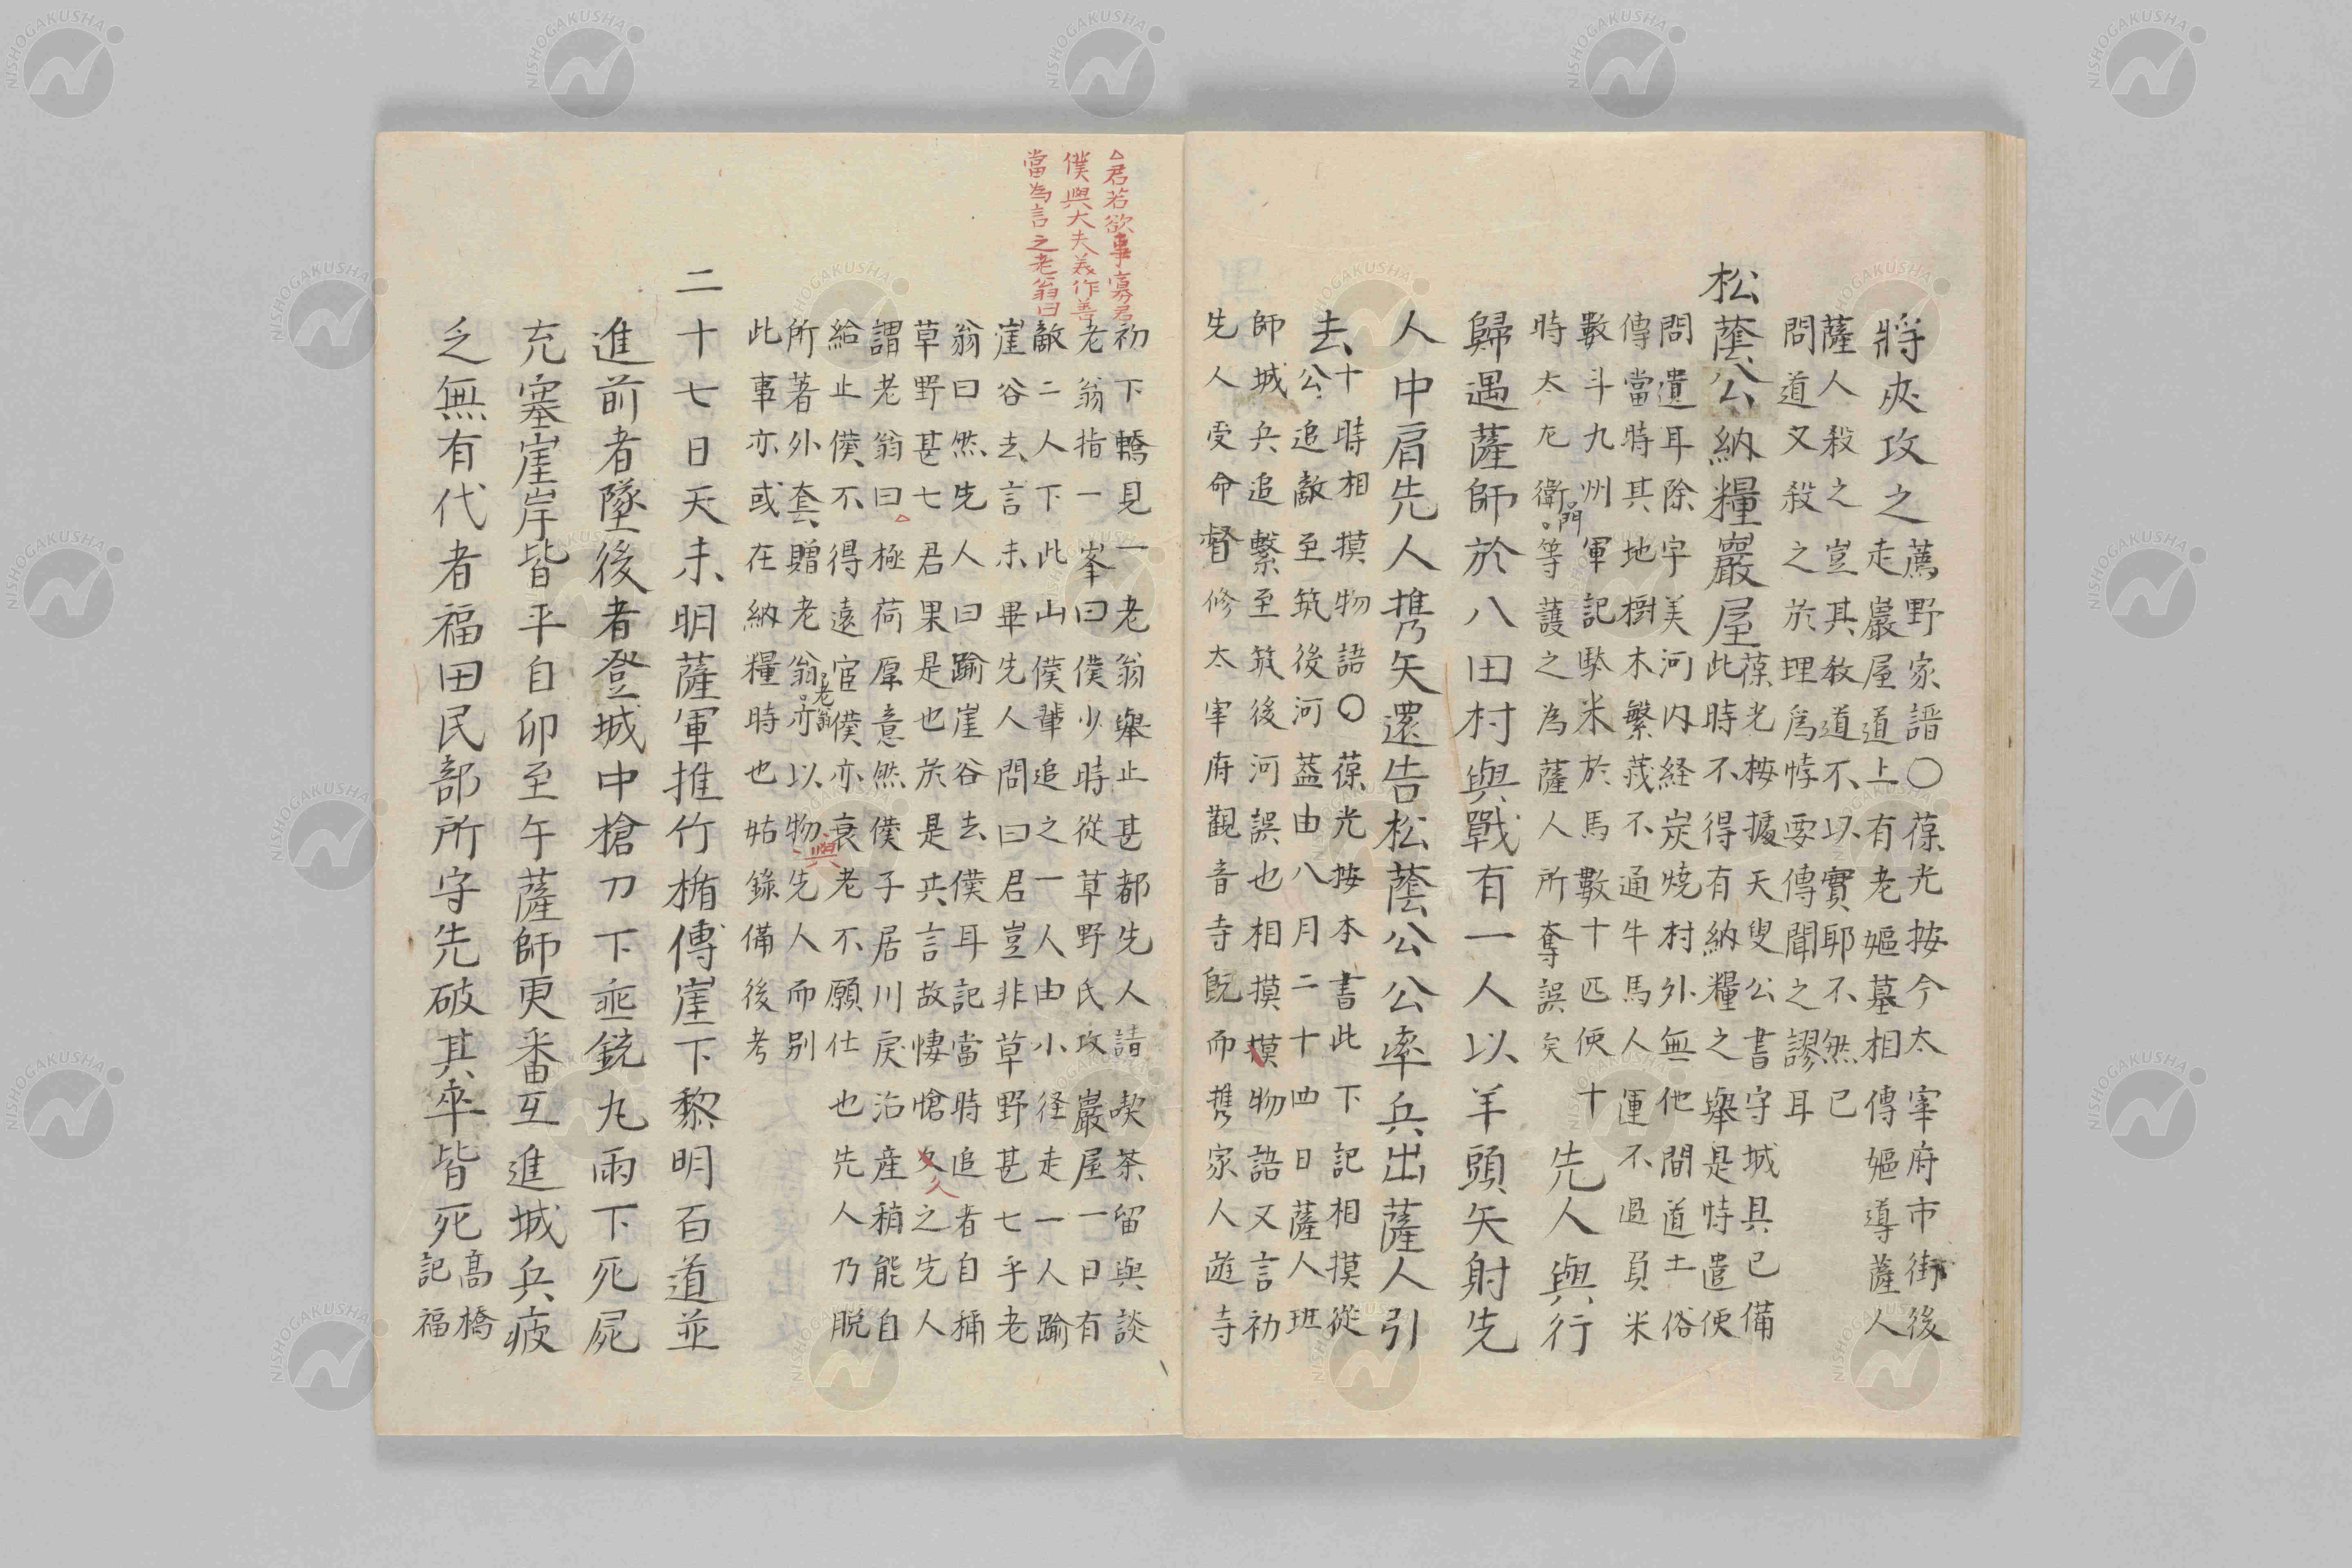 將夾攻之
薦野家譜〇葆光按今太宰府市街後
走巖屋道上有老嫗墓相傳嫗導薩人
薩人殺之豈其教道不以實耶不然已
問道又殺之於理爲悖要傳聞之謬耳
松蔭公納糧巖屋
葆光按據天叟公書守城具已備
此時不得有納糧之舉是時遣使
問遺耳除宇美河内経炭焼村外無他間道土俗
傳當時其地樹木繁茂不通牛馬人運不過負米
數斗九州軍記馱米於馬數十匹使十
時太左衛門等護之為薩人所奪誤矣
先人與行
歸遇薩師於八田村與戰有一人以羊頭矢射先
人中肩先人携矢還告松蔭公公率兵出薩人引
去
十時相摸物語〇葆光按本書此下記相摸從
公追敵至筑後河蓋由八月二十四日薩人班
師城兵追繫至筑後河誤也相摸摸物語又言初
先人受命督修太宰府觀音寺既而携家人遊寺
初下轎見一老翁舉止甚都先人請喫茶留與談
老翁指一峯曰僕少時從草野氏攻巖屋一日有
敵二人下此山僕輩追之一人由小径走一人踰
崖谷去言未畢先人問曰君豈非草野甚七乎老
翁曰然先人曰踰崖谷去僕耳記當時追者自稱
草野甚七君果是也於是共言故悽愴久之先人
謂老翁曰極荷厚意然僕子居川戻治産稍能自
給止僕不得遠宦僕亦衰老不願仕也先人乃脱
所著外套贈老翁老翁亦以物與先人而別
此事亦或在納糧時也姑錄備後考
△君若欲事寡君
僕與大夫義作善
當為言之老翁曰
二十七日天未明薩軍推竹楯傳崖下黎明百道並
進前者墜後者登城中槍刀下垂銃丸雨下死屍
充塞崖岸皆平自卯至午薩師更番互進城兵疲
乏無有代者福田民部所守先破其卒皆死
高橋
記福